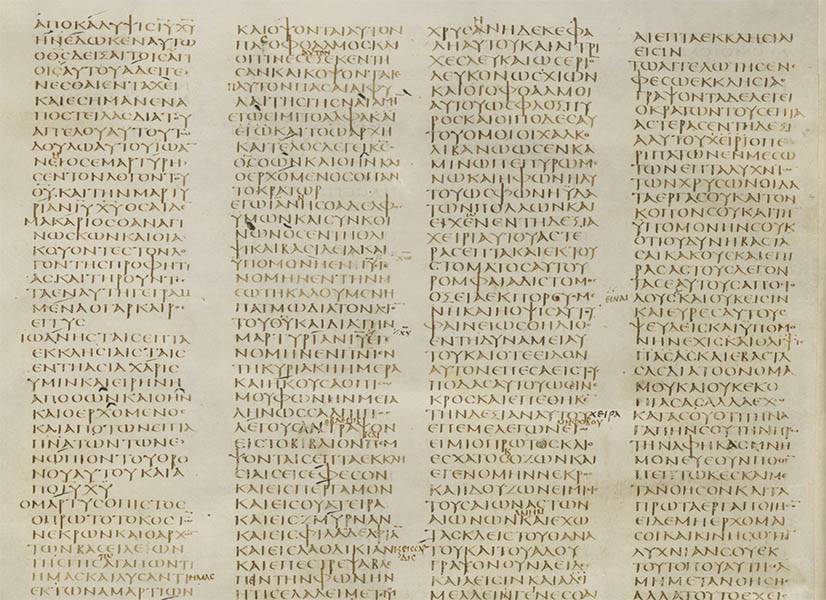 ΑΠΟΚΑΛΥΨΙϹΙΥΧΥ
ΗΝΕΔΩΚΕΝΑΥΤΩ
ΟΘϹΔΕΙΞΑΙΤΟΙϹΑΓΙ
ΟΙϹΑΥΤΟΥΑΔΕΙΓΕ
ΝΕϹΘΑΙΕΝΤΑΧΕΙ
ΚΑΙΕϹΗΜΑΝΕΝΑ
ΠΟϹΤΕΙΛΑϹΔΙΑΤΟΥ
ΑΓΓΕΛΟΥΑΥΤΟΥΤΩ
ΔΟΥΛΩΑΥΤΟΥΙΩΑ
ΝΕΙΟϹΕΜΑΡΤΥΡΗ
ϹΕΝΤΟΝΛΟΓΟΝΤΟΥ
ΘΥΚΑΙΤΗΝΜΑΡΤΥ
ΡΙΑΝΙΥΧΥΟϹΑΕΙΔΕ
ΜΑΚΑΡΙΟϹΟΑΝΑΓΙ
ΝΩϹΚΩΝΚΑΙΟΙΑ
ΚΟΥΟΝΤΕϹΤΟΝΛΟ
ΓΟΝΤΗϹΠΡΟΦΗΤΙ
ΑϹΚΑΙΤΗΡΟΥΝΤΕϹ
ΤΑΕΝΑΥΤΗΓΕΓΡΑΜ
ΜΕΝΑΟΓΑΡΚΑΙΡΟϹ
ΕΓΓΥϹ
ΙΩΑΝΗϹΤΑΙϹΕΠΤΑ
ΕΚΚΛΗϹΙΑΙϹΤΑΙϹ
ΕΝΤΗΑϹΙΑΧΑΡΙϹ
ΥΜΙΝΚΑΙΕΙΡΗΝΗ
ΑΠΟΟΩΝΚΑΙΟΗΝ
ΚΑΙΟΕΡΧΟΜΕΝΟϹ
ΚΑΙΑΠΟΤΩΝΕΠΤΑ
ΠΝΑΤΩΝΤΩΝΕ
ΝΩΠΙΟΝΤΟΥΘΡΟ
ΝΟΥΑΥΤΟΥΚΑΙΑ
ΠΟΙΥΧΥ
ΟΜΑΡΤΥϹΟΠΙϹΤΟϹ
ΟΠΡΩΤΟΤΟΚΟϹΤΩ
ΝΕΚΡΩΝΚΑΙΟΑΡΧΩ
ΤΩΝΒΑϹΙΛΕΩΝ
ΤΗϹΓΗϹΤΩΑΓΑΠΩΝΤΙ
ΗΜΑϹΚΑΙΛΥϹΑΝΤΙ ΗΜΑϹ
ΕΚΤΩΝΑΜΑΡΤΙΩΝ
ΚΑΙΟΨΟΝΤΑΙΑΥΤΟΝ
ΠΑϹΟΦΘΑΛΜΟϹΚΑΙ
ΟΙΤΙΝΕϹΕΞΕΚΕΝΤΗ
ϹΑΝΚΑΙΚΟΨΟΝΤΑΙΕ
ΠΑΥΤΟΝΠΑϹΑΙΑΙΦΥ
ΛΑΙΤΗϹΓΗϹΝΑΙΑΜΗ
ΕΓΩΕΙΜΙΤΟΑΛΦΑΚΑΙ
ΕΓΩΚΑΙΤΟΩΑΡΧΗ
ΚΑΙΤΕΛΟϹΛΕΓΕΙΚϹ
ΟΘϹΟΩΝΚΑΙΟΗΝΚΑΙ
ΟΕΡΧΟΜΕΝΟϹΟΠΑΝ
ΤΟΚΡΑΤΩΡ
ΕΓΩΙΩΑΝΗϹΟΑΔΕΛΦΟϹ
ΥΜΩΝΚΑΙϹΥΝΚΟΙ
ΝΩΝΟϹΕΝΤΗΘΛΙ
ΨΙΚΑΙΒΑϹΙΛΕΙΑΚΑΙ
ΥΠΟΜΟΝΗΕΝΙΥΕΓΕ ΧΩ
ΝΟΜΗΝΕΝΤΗΝΗ
ϹΩΤΗΚΑΛΟΥΜΕΝΗ
ΠΑΤΜΩΔΙΑΤΟΝΛΟΓΟ
ΤΟΥΘΥΚΑΙΔΙΑΤΗΝ
ΜΑΡΤΥΡΙΑΝΙΥΕΓΕ ΧΥ
ΝΟΜΗΝΕΝΠΝΙΕΝ
ΤΗΚΥΡΙΑΚΗΗΜΕΡΑ
ΚΑΙΗΚΟΥϹΑΟΠΙϹΩ
ΜΟΥΦΩΝΗΝΜΕΓΑ
ΛΗΝΩϹϹΑΛΠΙΓΓΟϹ
ΛΕΓΟΥϹΑΝΓΡΑΨΟΝ
ΕΙϹΤΟΒΙΒΛΙΟΝΠΕΜ
ΨΟΝΤΑΙϹΕΠΤΑΕΚΚΛΗ
ϹΙΑΙϹΕΙϹΕΦΕϹΟΝ
ΚΑΙΕΙϹΠΕΡΓΑΜΟΝ
ΚΑΙΕΙϹΘΥΑΤΕΙΡΑ
ΚΑΙΕΙϹΖΜΥΡΝΑΝ
ΚΑΙΕΙϹΦΙΛΑΔΕΛΦΙΑ
ΚΑΙΕΙϹΛΑΟΔΙΚΙΑΝ
ΚΑΙΕΠΕϹΤΡΕΨΑΒΛΕ
ΠΕΙΝΤΗΝΦΩΝΗΝ
ΗΤΙϹΕΛΑΛΕΙΜΕΤΕΜΟΥ
ΧΡΥϹΑΝΗΔΕΚΕΦΑ
ΛΗΑΥΤΟΥΚΑΙΑΙΤΡΙ
ΧΕϹΛΕΥΚΑΙΩϹΕΡΙΟΝ
ΛΕΥΚΟΝΩϹΧΙΩΝ
ΚΑΙΟΙΟΦΘΑΛΜΟΙ
ΑΥΤΟΥΩϹΦΛΟΞΠΥ
ΡΟϹΚΑΙΟΙΠΟΔΕϹΑΥ
ΤΟΥΟΜΟΙΟΙΧΑΛΚΟ
ΛΙΒΑΝΩΩϹΕΝΚΑ
ΜΙΝΩΠΕΠΥΡΩΜΕ
ΝΩΚΑΙΗΦΩΝΗΑΥ
ΤΟΥΩϹΦΩΝΗΥΔΑ
ΤΩΝΠΟΛΛΩΝΚΑΙ
ΕΙΧΕΝΕΝΤΗΔΕΞΙΑ
ΧΕΙΡΙΑΥΤΟΥΑϹΤΕ
ΡΑϹΕΠΤΑΚΑΙΕΚΤΟΥ
ϹΤΟΜΑΤΟϹΑΥΤΟΥ
ΡΟΜΦΑΙΑΔΙϹΤΟΜΟϹ
ΟΞΕΙΑΕΚΠΟΡΕΥΟΜΕ
ΝΗΚΑΙΗΟΨΙϹΑΥΤΟΥ
ΦΑΙΝΕΙΩϹΟΗΛΙΟϹ
ΕΝΤΗΔΥΝΑΜΕΙΑΥ
ΤΟΥΚΑΙΟΤΕΕΙΔΟΝ
ΑΥΤΟΝΕΠΕϹΑΕΙϹΤΟΥϹ
ΠΟΔΑϹΑΥΤΟΥΩϹΕΙΝΕ
ΚΡΟϹΚΑΙΕΠΕΘΗΚΕ
ΤΗΝΔΕΞΙΑΝΑΥΤΟΥ ΧΕΙΡΑ
ΕΠΕΜΕΛΕΓΩΝΕΓΩ
ΕΙΜΙΟΠΡΩΤΟϹΚΑΙΟ
ΕϹΧΑΤΟϹΚΑΙΟΖΩΝ
ΕΓΕΝΟΜΗΝΝΕΚΡΟϹ
ΚΑΙΙΔΟΥΖΩΝΕΙΜΙΕΙϹ
ΤΟΥϹΑΙΩΝΑϹΤΩΝ
ΑΙΩΝΩΝΚΑΙΕΧΩ
ΤΑϹΚΛΕΙϹΤΟΥΘΑΝΑ
ΤΟΥΚΑΙΤΟΥΑΔΟΥ
ΓΡΑΨΟΝΟΥΝΑΕΙΔΕϹ
ΚΑΙΑΕΙϹΙΝΚΑΙΑΔΕΙ
ΜΕΛΛΕΙΝΓΕΝΕϹΘΑΙ
ΑΙΕΠΤΑΕΚΚΛΗϹΙΑΙ
ΕΙϹΙΝ
ΤΩΑΓΓΕΛΩΤΗϹΕΝΕ
ΦΕϹΩΕΚΚΛΗϹΙΑϹ
ΓΡΑΨΟΝΤΑΔΕΛΕΓΕΙ
ΟΚΡΑΤΩΝΤΟΥϹΕΠΤΑ
ΑϹΤΕΡΑϹΕΝΤΗΔΕΞΙΑ
ΑΥΤΟΥΧΕΙΡΙΟΠΕ
ΡΙΠΑΤΩΝΕΝΜΕϹΩ
ΤΩΝΕΠΤΑΛΥΧΝΙΩ
ΤΩΝΧΡΥϹΩΝΟΙΔΑ
ΤΑΕΡΓΑϹΟΥΚΑΙΤΟΝ
ΚΟΠΟΝϹΟΥΚΑΙΤΗ
ΥΠΟΜΟΝΗΝϹΟΥΚΑΙ
ΟΤΙΟΥΔΥΝΗΒΑϹΤΑ
ϹΑΙΚΑΚΟΥϹΚΑΙΕΠΙ
ΡΑϹΑϹΤΟΥϹΛΕΓΟΝ
ΤΑϹΕΑΥΤΟΥϹΑΠΟϹΤΟ
ΕΙΝΑΙ ΛΟΥϹΚΑΙΟΥΚΕΙϹΙΝ
ΚΑΙΕΥΡΕϹΑΥΤΟΥϹ
ΨΕΥΔΕΙϹΚΑΙΥΠΟΜΟ
ΝΗΝΕΧΙϹΚΑΙΘΛΙΨΙϹ
ΠΑϹΑϹΚΑΙΕΒΑϹΤΑ
ϹΑϹΔΙΑΤΟΟΝΟΜΑ
ΜΟΥΚΑΙΟΥΚΕΚΟ
ΠΙΑϹΑϹΑΛΛΑΕΧΩ
ΚΑΤΑϹΟΥΟΤΙΤΗΝΑ
ΓΑΠΗΝϹΟΥΤΗΝΠΡΩ
ΤΗΝΑΦΗΚΑϹΜΝΗ
ΜΟΝΕΥΕΟΥΝΠΟΘΕΝ
ΠΕΠΤΩΚΕϹΚΑΙΜΕ
ΤΑΝΟΗϹΟΝΚΑΙΤΑ
ΠΡΩΤΑΕΡΓΑΠΟΙΗϹΟ
ΕΙΔΕΜΗΕΡΧΟΜΑΙ
ϹΟΙΚΑΙΚΙΝΗϹΩΤΗ
ΛΥΧΝΙΑΝϹΟΥΕΚ
ΤΟΥΤΟΠΟΥΑΥΤΗϹΕΑ
ΜΗΜΕΤΑΝΟΗϹΗϹ
ΑΛΛΑΤΟΥΤΟΕΧΕΙϹ